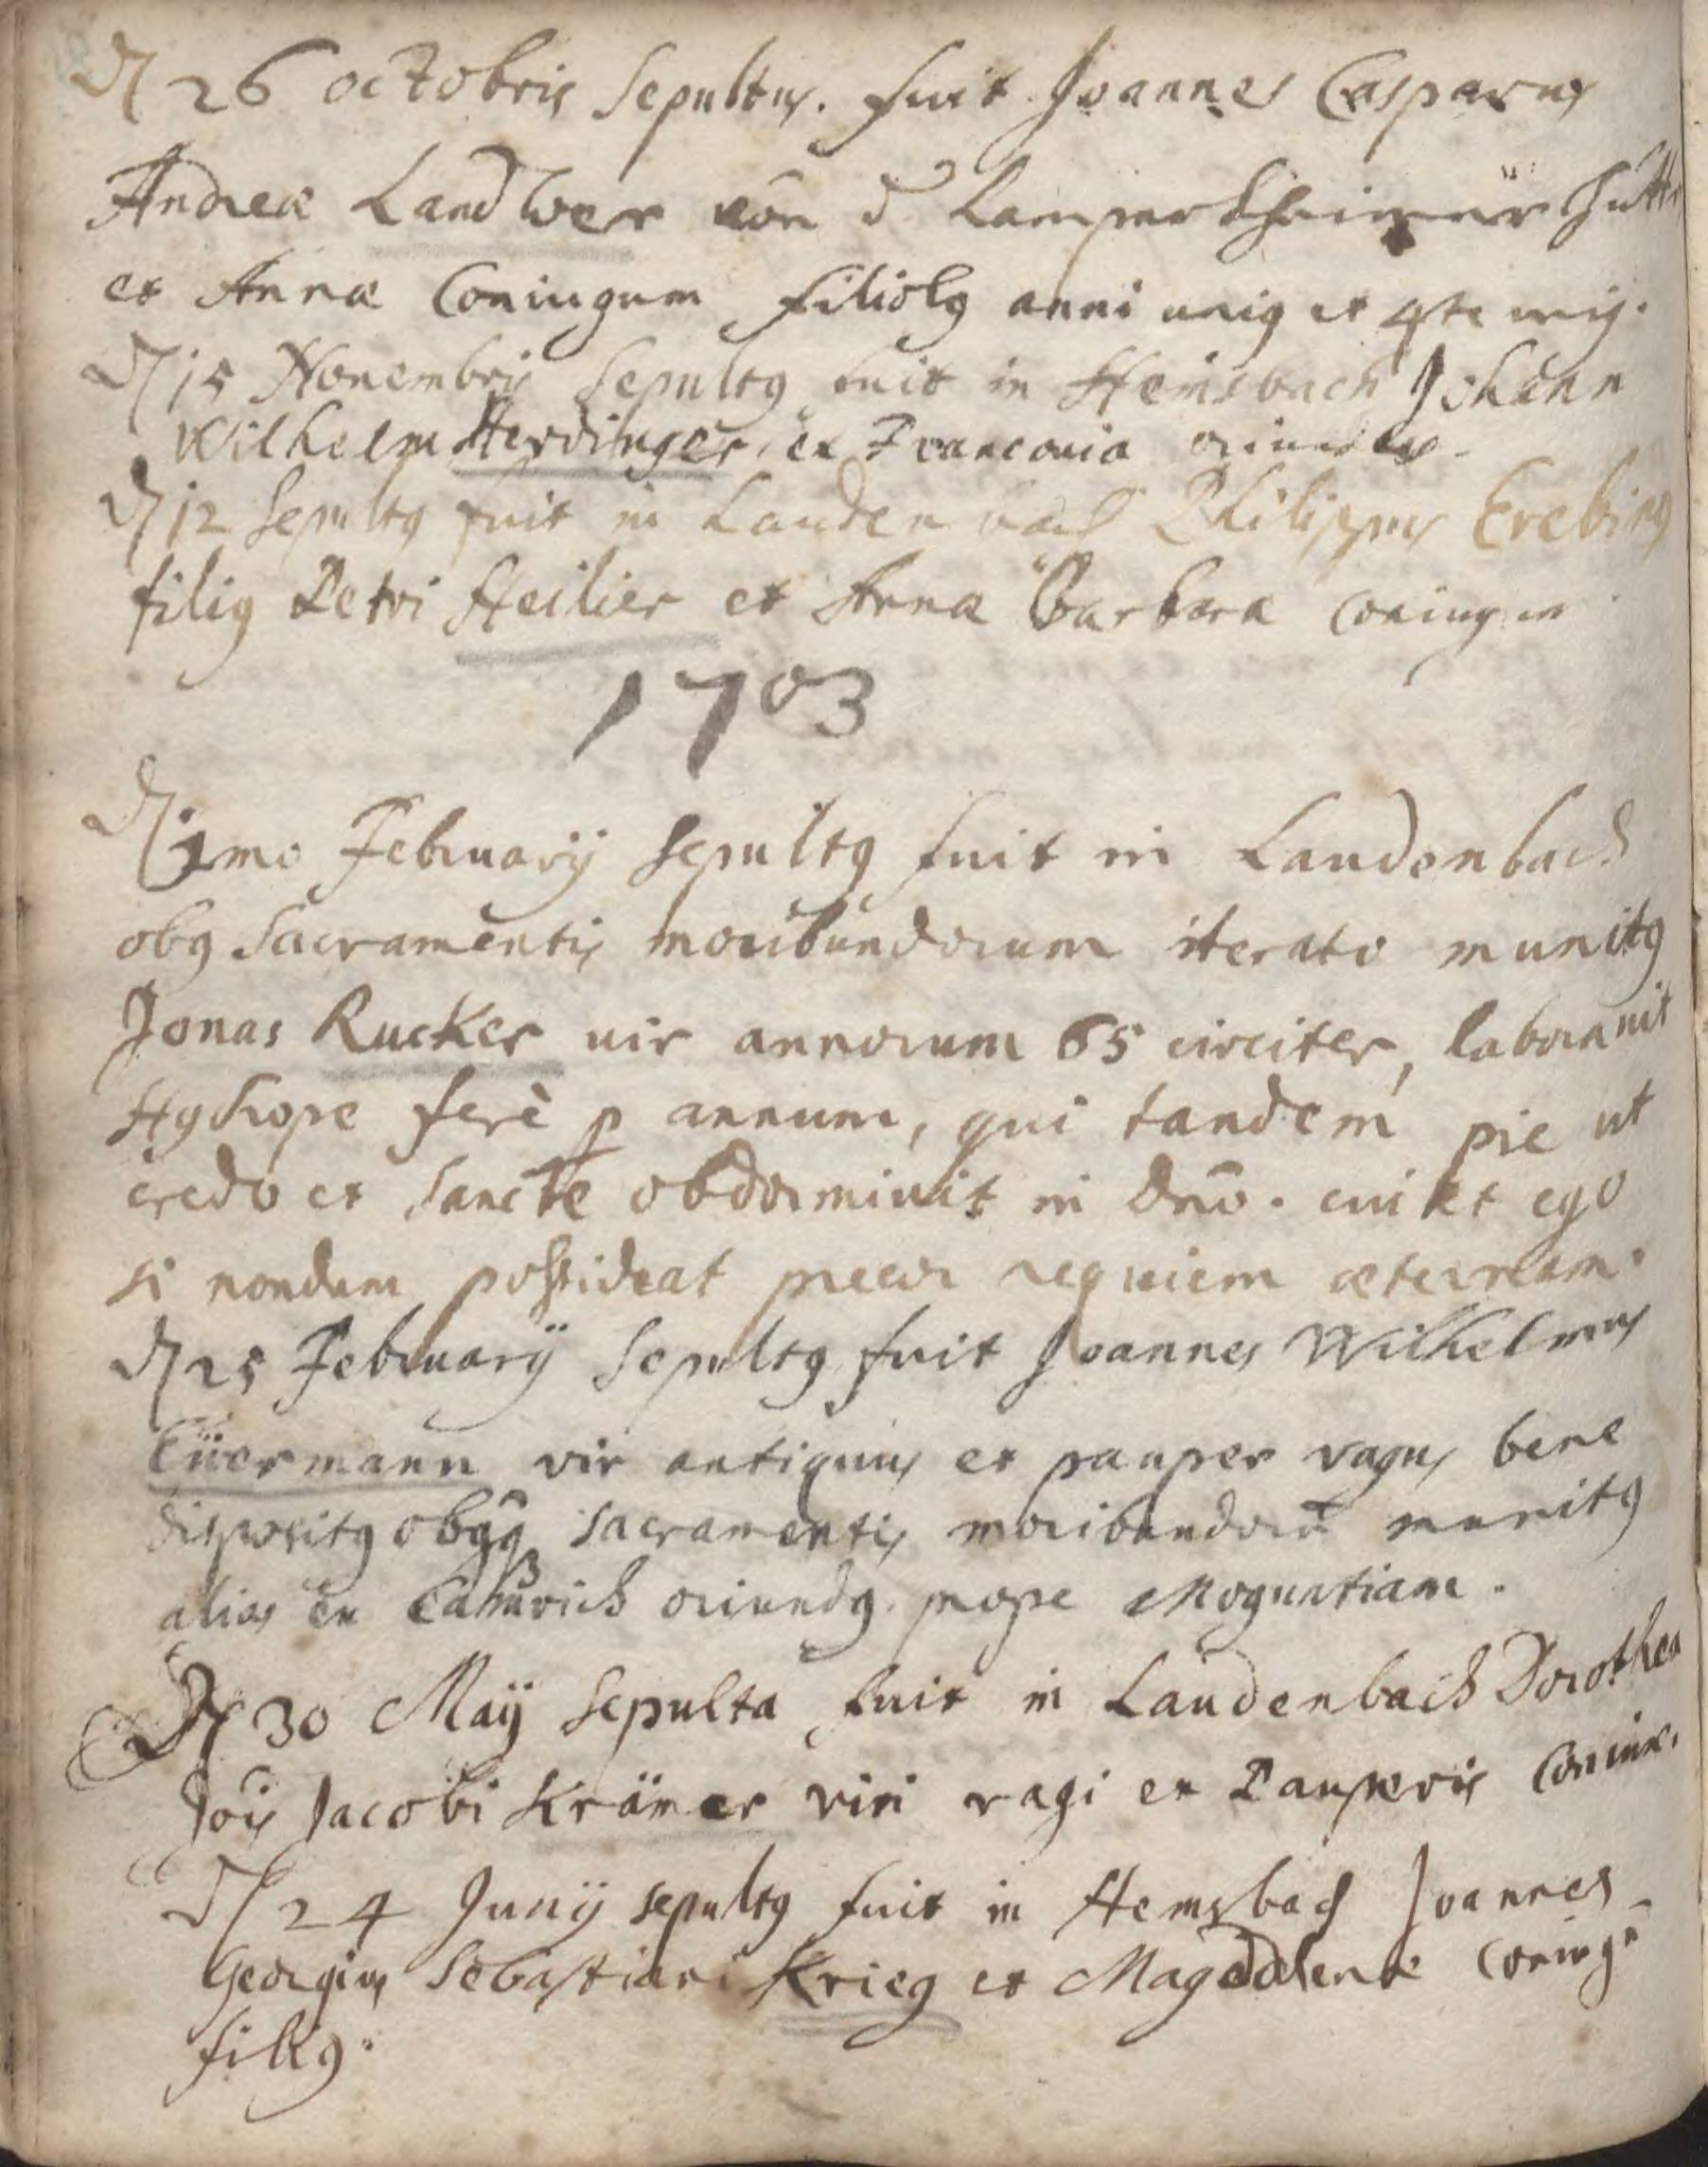 26 octobris Sepultus. fuit Joannes Casparus
Andreæ Landtwer von d. Lampertheimer Hütt
et Annæ Coniugum filiolg anni unig et
15 Novembrij Sepultg fuit in Hemsbach Johann
Wilhelm Herdinger, ex Franconia
12 Sepultg fuit in Laudenbach Philippus
filig Petri Heilier et Anna Barbara coniugum
1703
1mo Februarij sepultg fuit in Laudenbach
obg Sacramentis moribundorum iterato munitg
Jonas Rucker vir annorum 65 circiter, laborauit
Hydrope ferè p annum, qui tandem pie ut
credo et Sancte obdormiuit in dno. ego
si nondum possideat precor requiem æternam.
25 Februarij Sepultg fuit Joannes Wilhelmus
Eüermann vir antiquus et pauper vagus bene
dispositg Sacramentis moribundorū munitg
alias ex oriundg. prope Moguntiam.
30 Maij Sepulta fuit in Laudenbach Dorothea
Jois Jacobi Krämer viri vagi et Pauperis Coniux.
24 Junij sepultg fuit in Hemsbach Joannes
Georgius Sebastiani Krieg et Magdalenæ
filig.